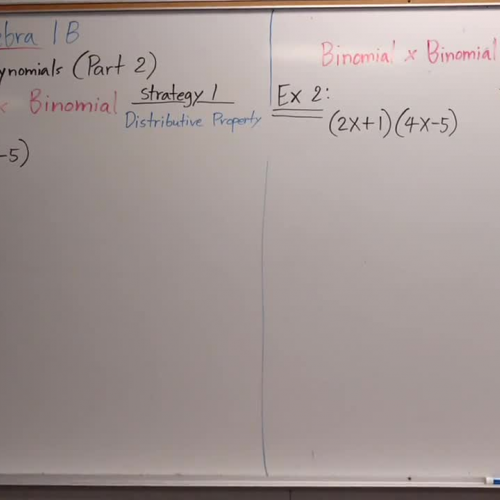 ebra 1B
ynomials (Part 2)
x Binomial Strategy 1
Distributive Property
-5)
Binomial x Binomial
Ex 2:
(2x+1)(4x-5)